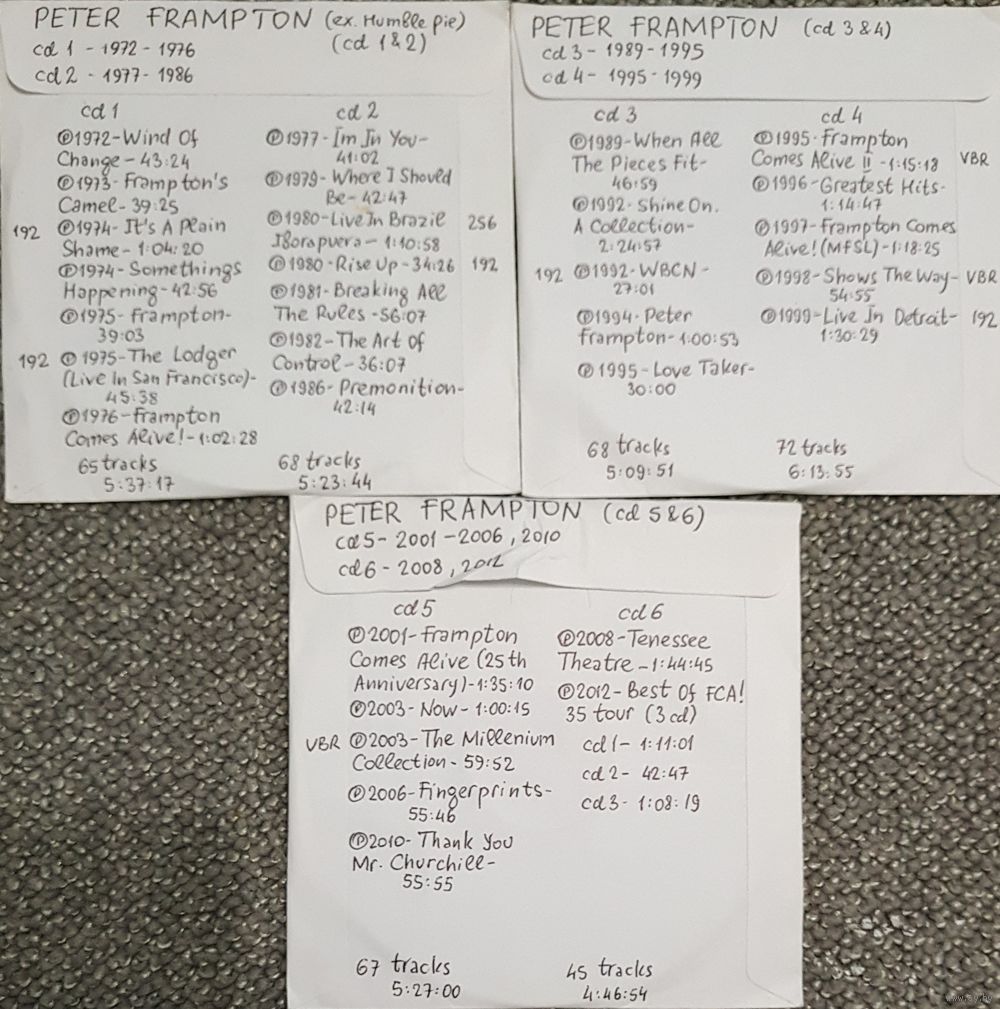 PETER FRAMPTON (ex. Humble pie)
cd 1 - 1972 - 1976 (cd 1&2)
cd 2 - 1977 - 1986
cd 1
℗1972-Wind Of
Change - 43:24
℗1973- Frampton's
Camel- 39:25
192 ℗1974- It's A Plain
Shame- 1:04:20
℗1974- Somethings
Happening- 42:56
℗1975- Frampton-
39:03
192 ℗ 1975-The Lodger
(Live In San Francisco)-
45:38
℗1976-Frampton
Comes Alive!-1:02:28
65 tracks
5:37:17
cd 2
℗1977-I'm In You-
41:02
℗1979-Where I Should
Be- 42:47
℗1980-Live In Brazil 256
Iborapuera - 1:10:58
℗1980-Rise Up -34:26 192
℗1981-Breaking All
The Rules -56:07
℗1982-The Art Of
Control-36:07
℗1986-Premonition-
42:14
68 tracks
5:23:44
PETER FRAMPTON (cd 3&4)
cd 3- 1989-1995
cd 4- 1995-1999
cd 3
℗1989-When All
The Pieces Fit-
46:59
℗1992-Shine On.
A Collection-
2:24:57
192 ℗1992-WBCN-
27:01
℗1994-Peter
Frampton-1:00:53
℗1995-Love Taker-
30:00
68 tracks
5:09:51
cd 4
℗1995-Frampton
Comes Alive II -1:15:18 VBR
℗1996-Greatest Hits-
1:14:47
℗1997-Frampton Comes
Alive!(MFSL)-1:18:25
℗1998-Shows The Way- VBR
54:55
℗1999-Live In Detrait- 192
1:30:29
72 tracks
6:13:55
PETER FRAMPTON (cd 5&6)
cd5- 2001 -2006, 2010
cd6 - 2008, 2012
cd 5
℗2001-Frampton
Comes Alive (25th
Anniversary)-1:35:10
℗2003-Now-1:00:15
VBR ℗2003-The Millenium
Collection- 59:52
℗2006-Fingerprints-
55:46
℗2010-Thank You
Mr. Churchill-
55:55
67 tracks
5:27:00
cd 6
℗2008-Tenessee
Theatre -1:44:45
℗2012-Best Of FCA!
35 tour (3cd)
cd 1- 1:11:01
cd 2- 42:47
cd 3- 1:08:19
45 tracks
4:46:54